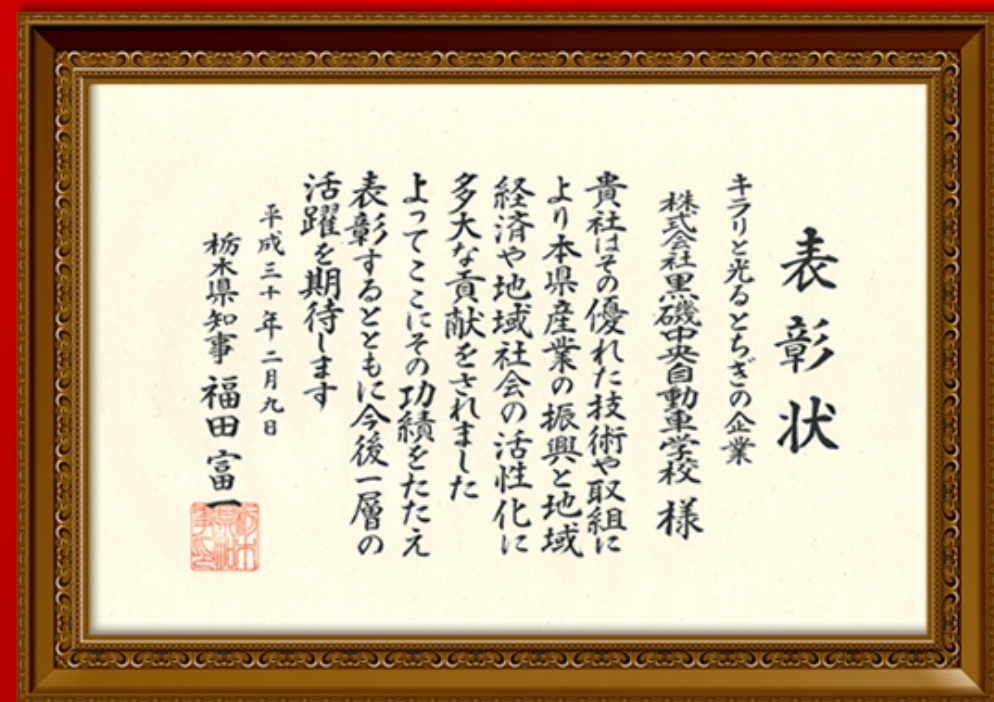 表彰状
キラリと光るとちぎの企業
株式会社黒磯中央自動車学校 様
貴社はその優れた技術や取組に
より本県産業の振興と地域
経済や地域社会の活性化に
多大な貢献をされました
よってここにその功績をたたえ
表彰するとともに今後一層の
活躍を期待します
平成三十年二月九日
栃木県知事 福田富一